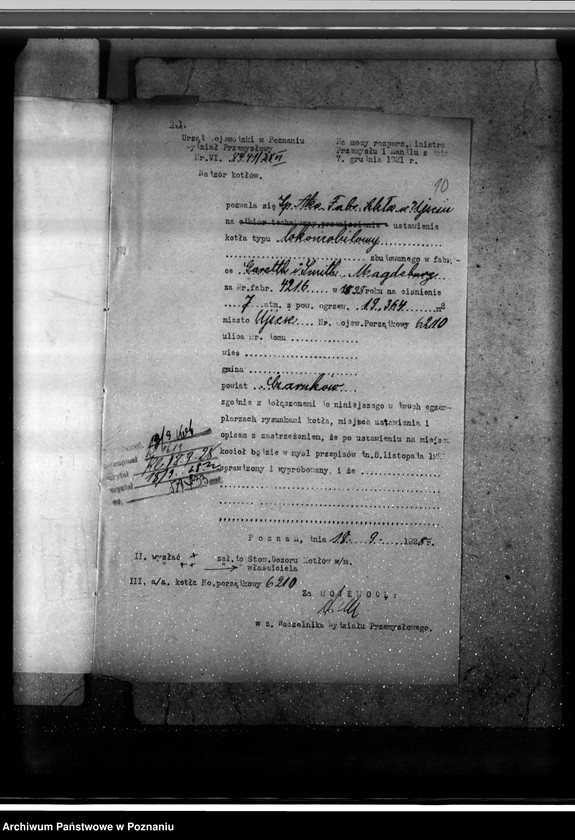 Urząd Wojewódzki w Poznaniu
Wydział Przemysłowy
Nr.VI.
Nadzór kotłów.
Na mocy rozporz. Ministra
Przemysłu i Handlu z dnia
7. grudnia 1921 r.
10
pozwala się Sp. Akc. Fabr. Szkła w Ujściu
na odbiór techniczny przewidzianie ustawienie
kotła typu lokomobilowy
zbudowanego w fabr.-
ce Garetth i Smith Magdeburg
za Nr.fabr. 4216 w roku na ciśnienie
7 atm. z pow. ogrzew. 19.364 m2
miasto Ujście Nr. Wojew.Porządkowy 6210
ulica nr. domu
wieś
gmina
powiat Czarnków
zgodnie z dołączonemi do niniejszego w dwoch egzem-
plarzach rysunkami kotła, miejsca ustawienia i
opisem z zastrzeżeniem, że po ustawieniu na miejscu
kocioł będzie w myśl przepisów dn.8.listopada
sprawdzony i wypróbowany, i że
Poznań, dnia 18. 9. 1928
II. wysłać zał. to Stow.Dozoru Kotłów w/m.
właściciela
III. a/a. kotła No.porządkowy 6210
Za WOJEWODĘ:
w z. Naczelnika Wydziału Przemysłowego.
Archiwum Państwowe w Poznaniu